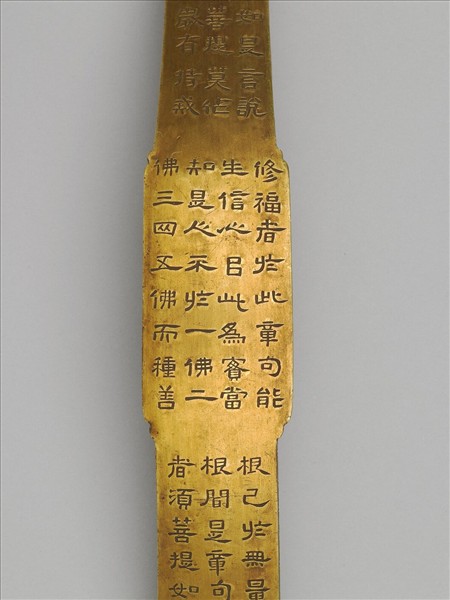 如是言說
菩提莫作
歲有持戒
修福者於此章句能
生信心㠯此為實當
知是人不於一佛二
佛三四五佛而種善
根已於無量
根聞是章句
者須菩提如